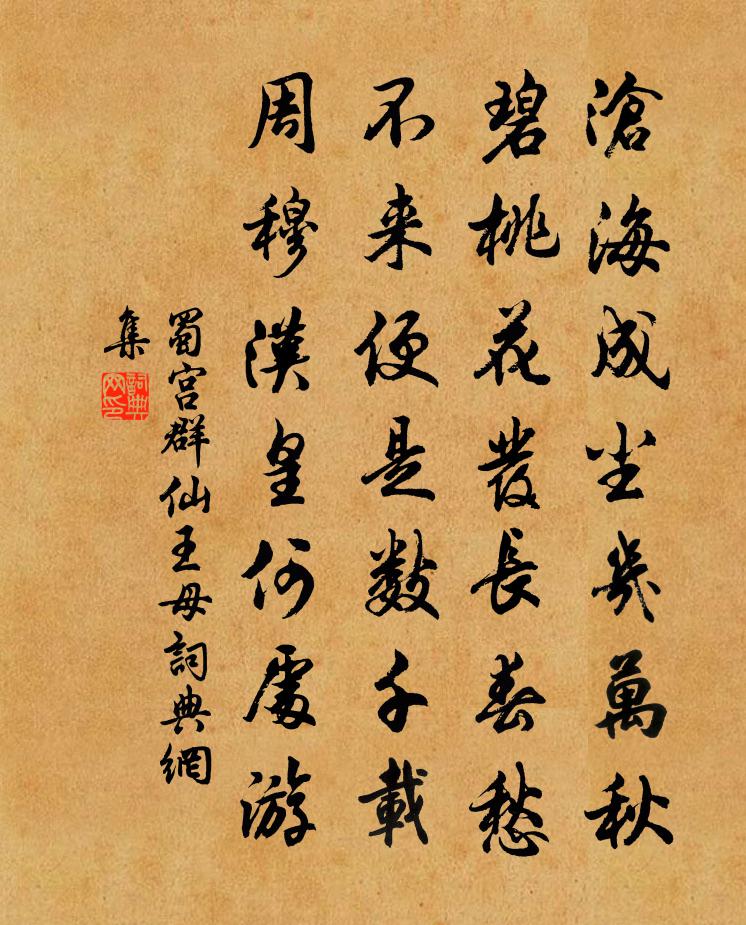 滄海成尘幾萬秋
碧桃花發長春愁
不来便是數千載
周穆漢皇何處游
蜀宮群仙王母詞典網
集
詞典
网印